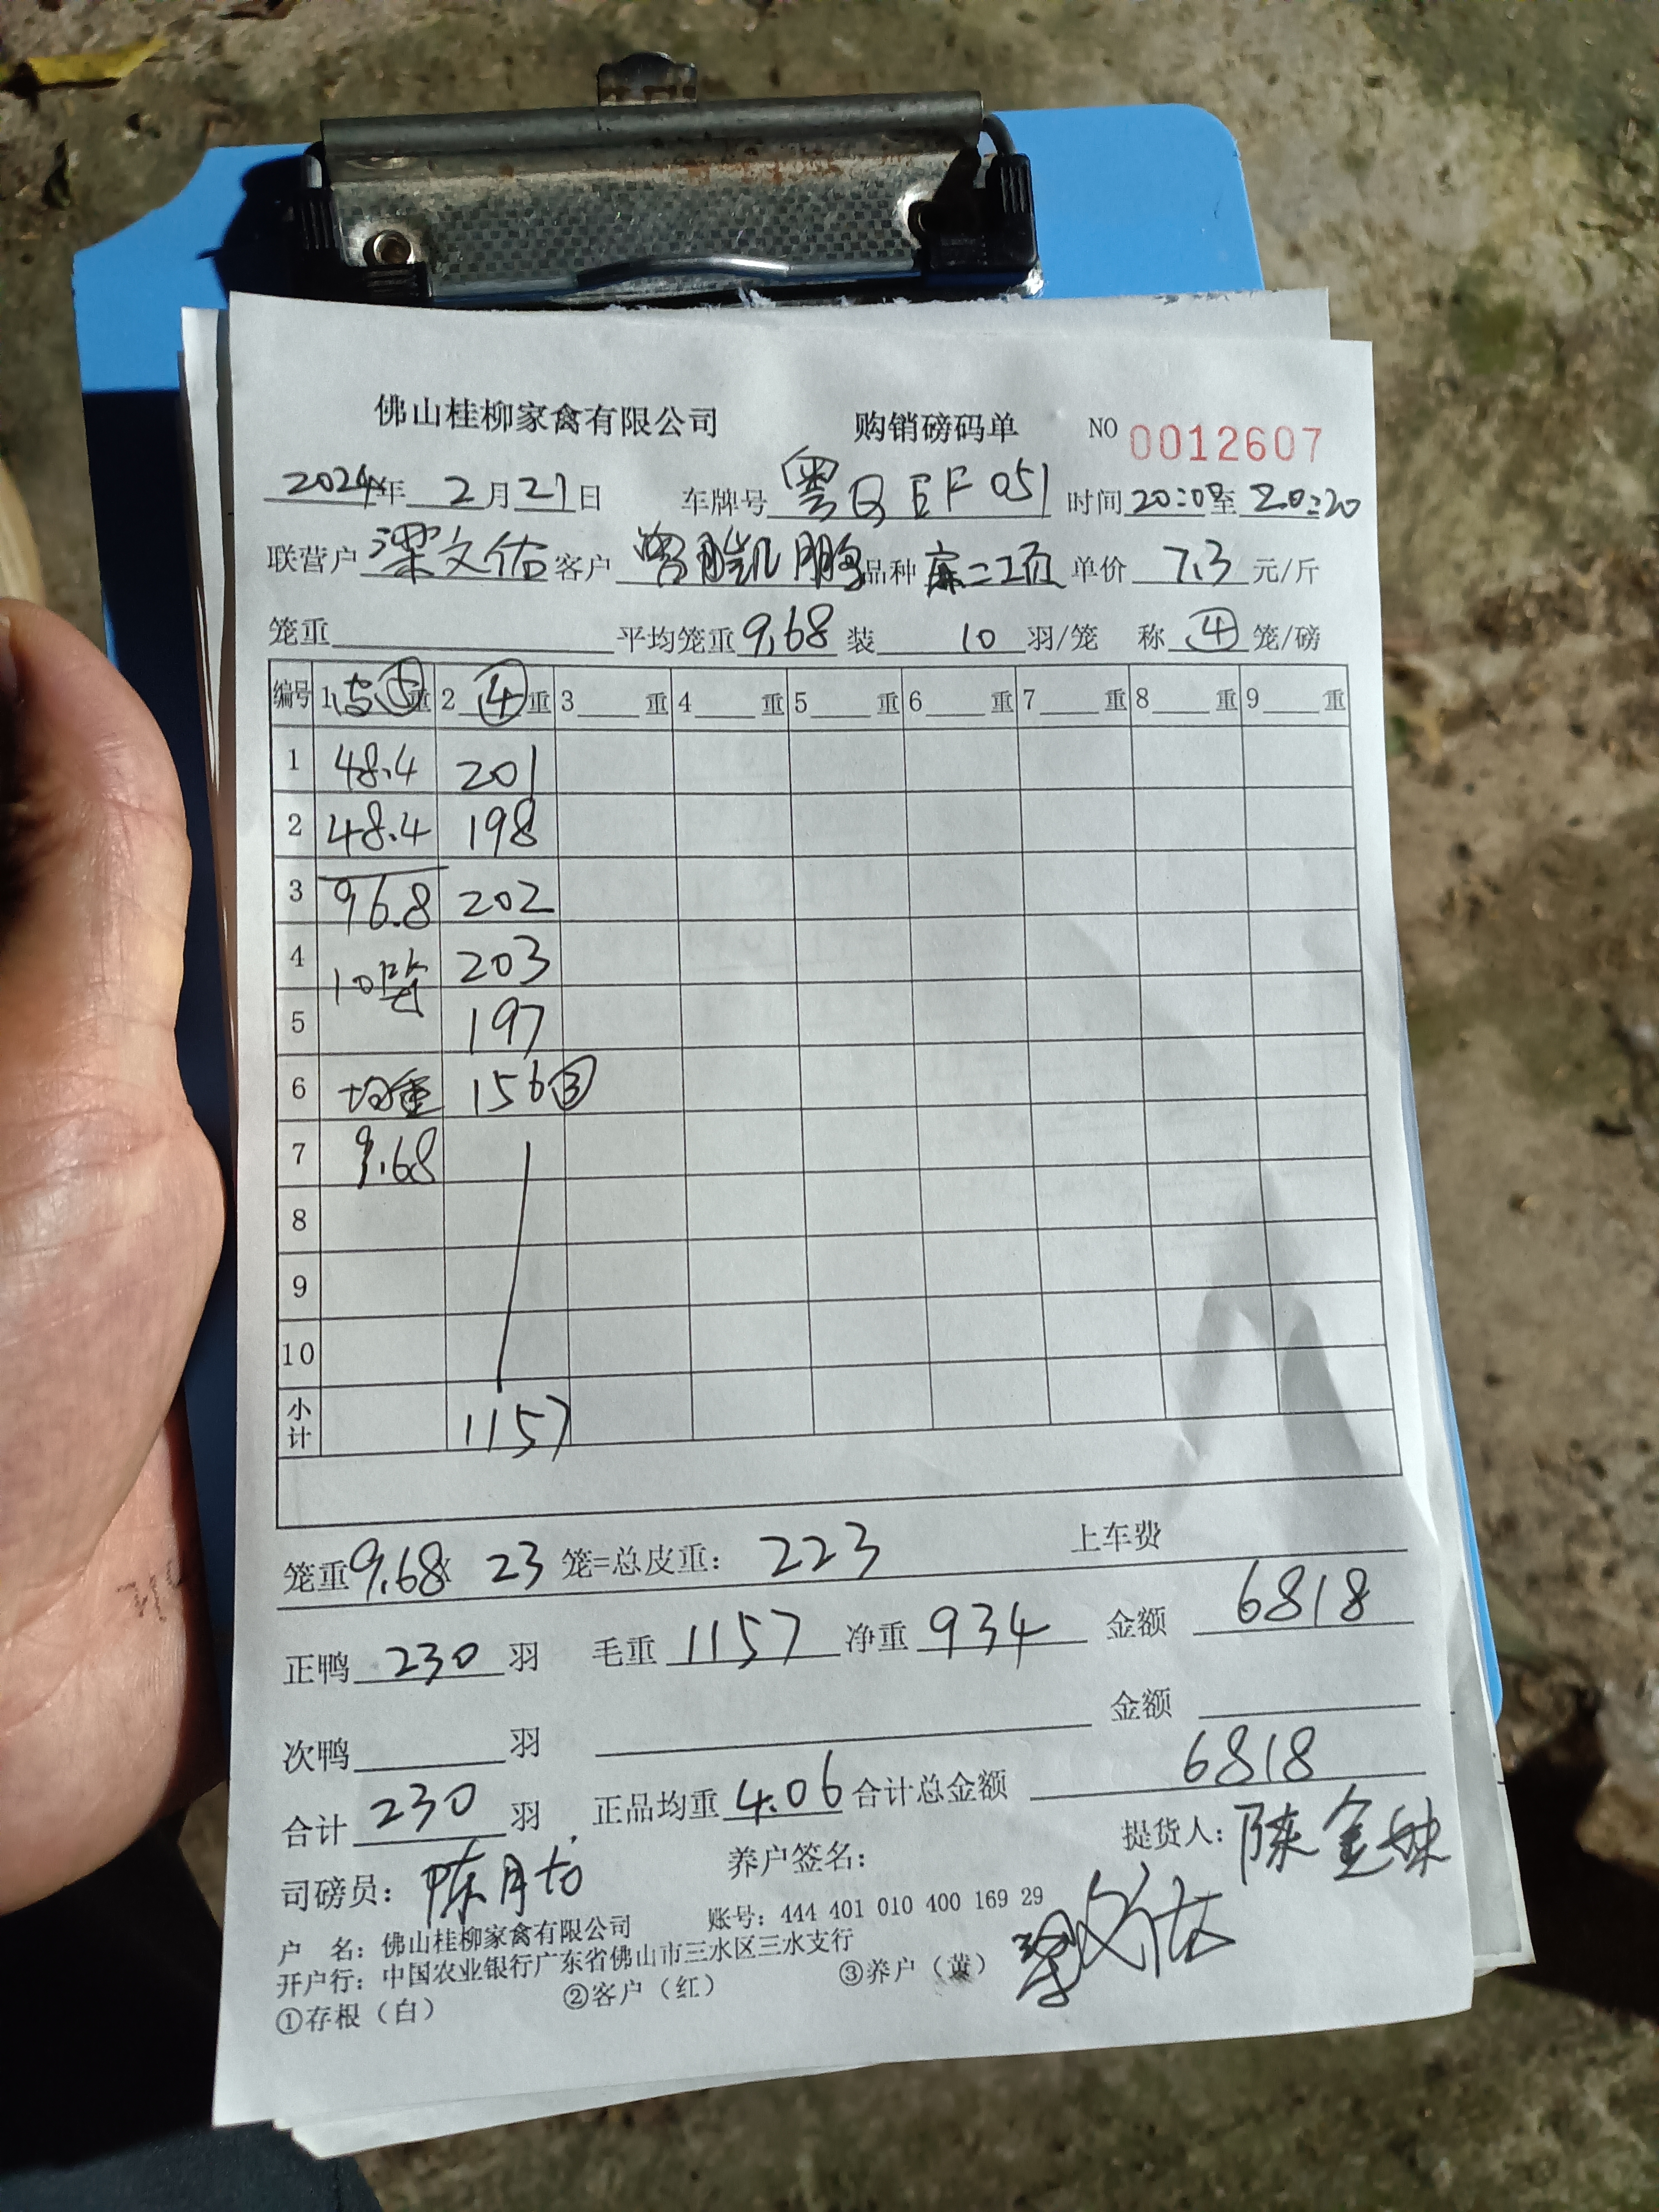 佛山桂柳家禽有限公司 购销磅码单 NO 0012607
2024年 2月21日 车牌号 粤QEF051 时间 20:08至 20:20
联营户 梁文佑 客户 曾胜凯鹏 品种 麻二项 单价 7.3 元/斤
笼重 平均笼重 9.68 装 10 羽/笼 称 ④ 笼/磅
编号 1 ⑤重 2 ④重 3 重 4 重 5 重 6 重 7 重 8 重 9 重
1 48.4 201
2 48.4 198
3 96.8 202
4 10笼 203
5 197
6 均重 156③
7 9.68
8
9
10
小计 1157
笼重9.68X 23 笼=总皮重: 223 上车费
正鸭 230 羽 毛重 1157 净重 934 金额 6818
次鸭 羽 金额
合计 230 羽 正品均重 4.06 合计总金额 6818
司磅员: 陈月 养户签名: 梁文佑 提货人: 陈金
户 名: 佛山桂柳家禽有限公司 账号: 444 401 010 400 169 29
开户行: 中国农业银行广东省佛山市三水区三水支行
①存根（白） ②客户（红） ③养户（黄）